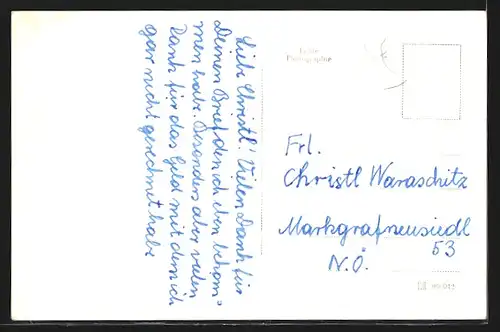 Liebe Christl! Vielen Dank für
Deinen Brief den ich eben bekom=
men habe. Besonders aber vielen
Dank für das Geld mit dem ich
gar nicht gerechnet habe
Echte
Photographie
Frl.
Christl Waraschitz
Markgrafneusiedl
53
N.Ö.